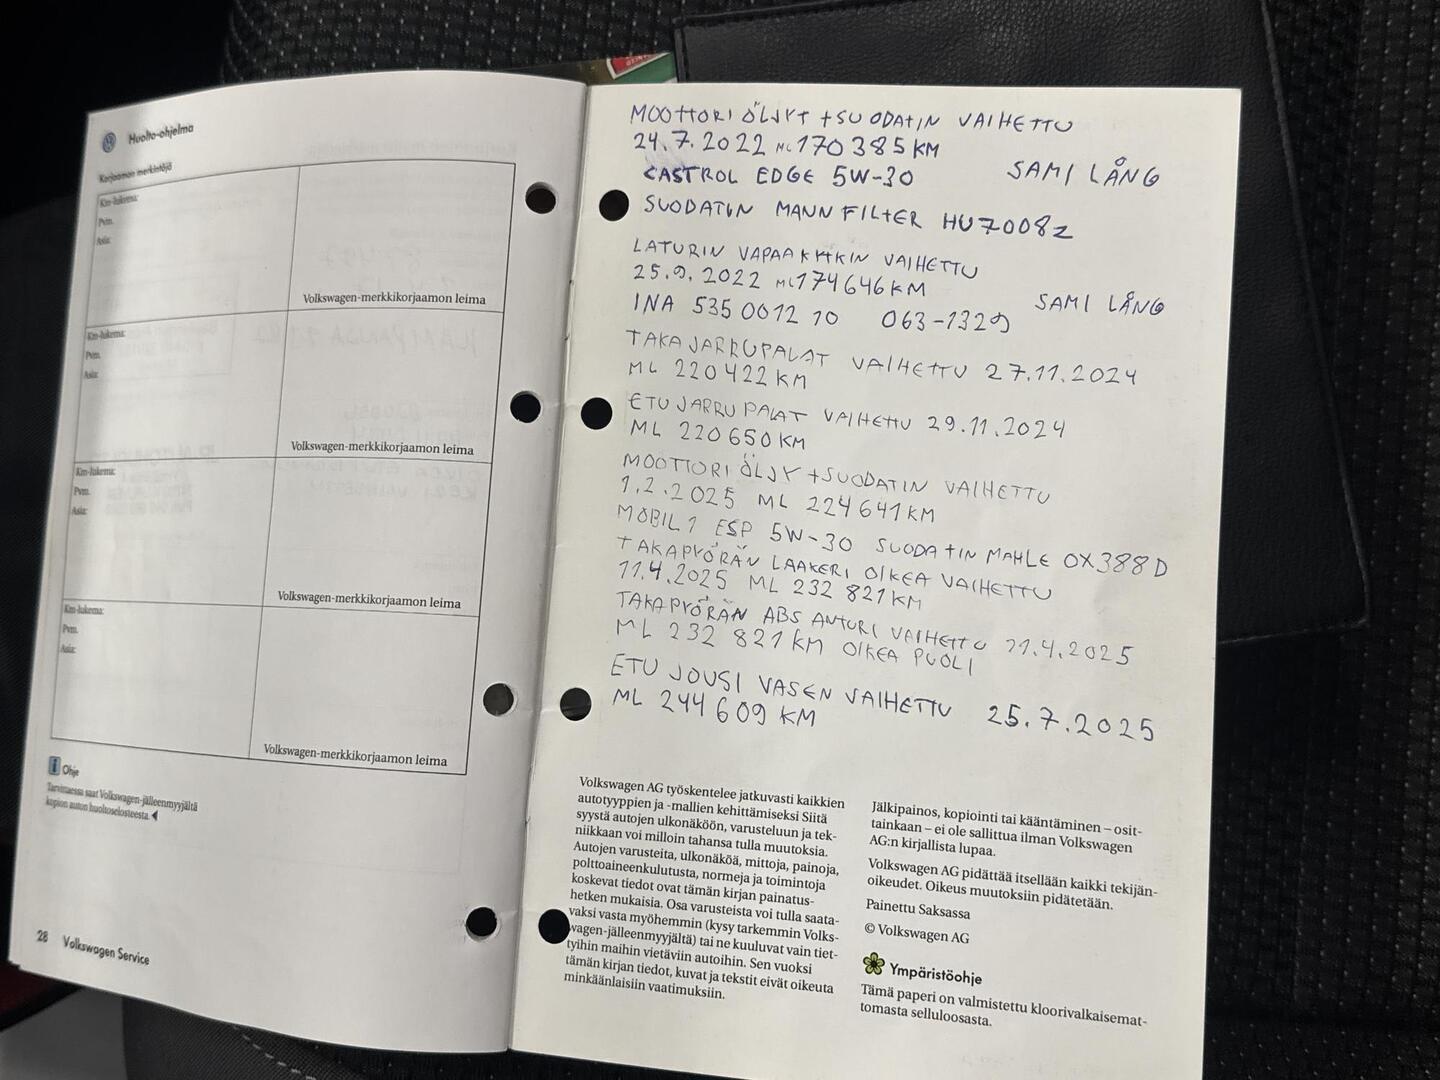 Huolto-ohjelma
Korjaamon merkintöjä
Km-lukema:
Pvm.
Asia:
Volkswagen-merkkikorjaamon leima
Km-lukema:
Pvm.
Asia:
Volkswagen-merkkikorjaamon leima
Km-lukema:
Pvm.
Asia:
Volkswagen-merkkikorjaamon leima
Km-lukema:
Pvm.
Asia:
Volkswagen-merkkikorjaamon leima
Ohje
Tarvittaessa saat Volkswagen-jälleenmyyjältä
kopion auton huoltoselosteesta.
28 Volkswagen Service
MOOTTORI ÖLJYT + SUODATIN VAIHETTU
24.7.2022 ML 170 385 KM
CASTROL EDGE 5W-30 SAMI LÅNG
SUODATIN MANN FILTER HU7008z
LATURIN VAPAAKYTKIN VAIHETTU
25.9.2022 ML 174646 KM
INA 535 0012 10 063-1329 SAMI LÅNG
TAKAJARRUPALAT VAIHETTU 27.11.2024
ML 220422 KM
ETUJARRUPALAT VAIHETTU 29.11.2024
ML 220650 KM
MOOTTORI ÖLJY + SUODATIN VAIHETTU
1.2.2025 ML 224641 KM
MOBIL 1 ESP 5W-30 SUODATIN MAHLE OX388D
TAKAPYÖRÄN LAAKERI OIKEA VAIHETTU
11.4.2025 ML 232 821 KM
TAKAPYÖRÄN ABS ANTURI VAIHETTU 11.4.2025
ML 232 821 KM OIKEA PUOLI
ETU JOUSI VASEN VAIHETTU 25.7.2025
ML 244 609 KM
Volkswagen AG työskentelee jatkuvasti kaikkien
autotyyppien ja -mallien kehittämiseksi Siitä
syystä autojen ulkonäköön, varusteluun ja tek-
niikkaan voi milloin tahansa tulla muutoksia.
Autojen varusteita, ulkonäköä, mittoja, painoja,
polttoaineenkulutusta, normeja ja toimintoja
koskevat tiedot ovat tämän kirjan painatus-
hetken mukaisia. Osa varusteista voi tulla saata-
vaksi vasta myöhemmin (kysy tarkemmin Volks-
wagen-jälleenmyyjältä) tai ne kuuluvat vain tiet-
tyihin maihin vietäviin autoihin. Sen vuoksi
tämän kirjan tiedot, kuvat ja tekstit eivät oikeuta
minkäänlaisiin vaatimuksiin.
Jälkipainos, kopiointi tai kääntäminen – osit-
tainkaan – ei ole sallittua ilman Volkswagen
AG:n kirjallista lupaa.
Volkswagen AG pidättää itsellään kaikki tekijän-
oikeudet. Oikeus muutoksiin pidätetään.
Painettu Saksassa
© Volkswagen AG
Ympäristöohje
Tämä paperi on valmistettu kloorivalkaisemat-
tomasta selluloosasta.